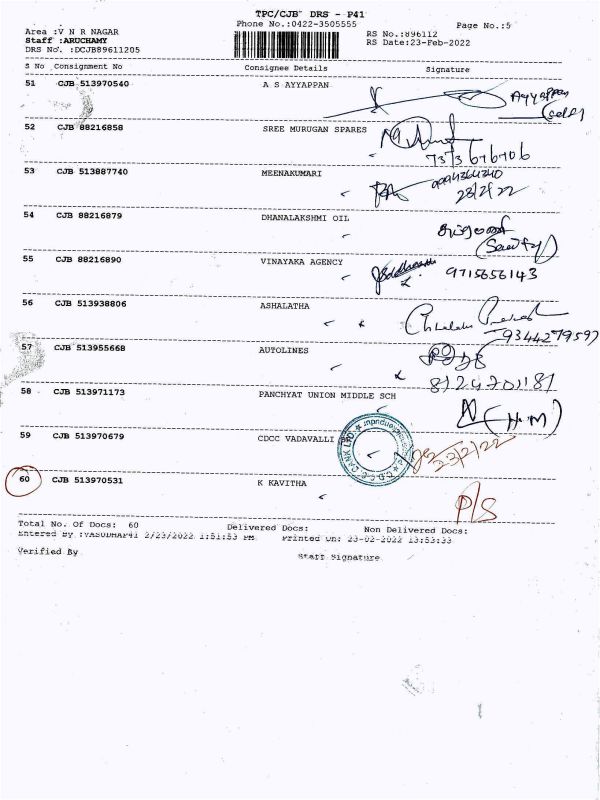 TPC/CJB DRS - P41
Phone No.:0422-3505555
Page No.:5
Area :V N R NAGAR
Staff :ARUCHAMY
DRS No. :DCJB89611205
RS No.:896112
RS Date:23-Feb-2022
S No Consignment No Consignee Details Signature
51 CJB 513970540 A S AYYAPPAN Ayyappan
(self)
52 CJB 88216858 SREE MURUGAN SPARES
7373676706
53 CJB 513887740 MEENAKUMARI 9994364340
23/2/22
54 CJB 88216879 DHANALAKSHMI OIL
55 CJB 88216890 VINAYAKA AGENCY 9715656143
56 CJB 513938806 ASHALATHA
9344279597
57 CJB 513955668 AUTOLINES
8124701181
58 CJB 513971173 PANCHYAT UNION MIDDLE SCH (H.M)
59 CJB 513970679 CDCC VADAVALLI 23/2/22
60 CJB 513970531 K KAVITHA P/S
Total No. Of Docs: 60 Delivered Docs: Non Delivered Docs:
Entered By :VASUDHAP41 2/23/2022 1:51:53 PM Printed On: 23-02-2022 13:53:33
Verified By Staff Signature